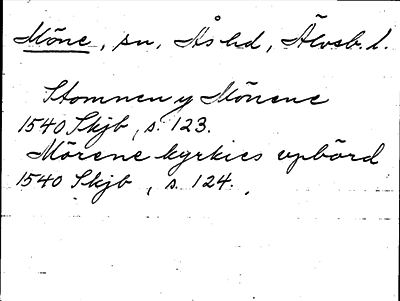 Möne, sn, Ås hd, Älvsb. l.
Stommen y Mönene
1540 Skjb, s. 123.
Mörene kyrkies vpbörd
1540 Skjb, s. 124.